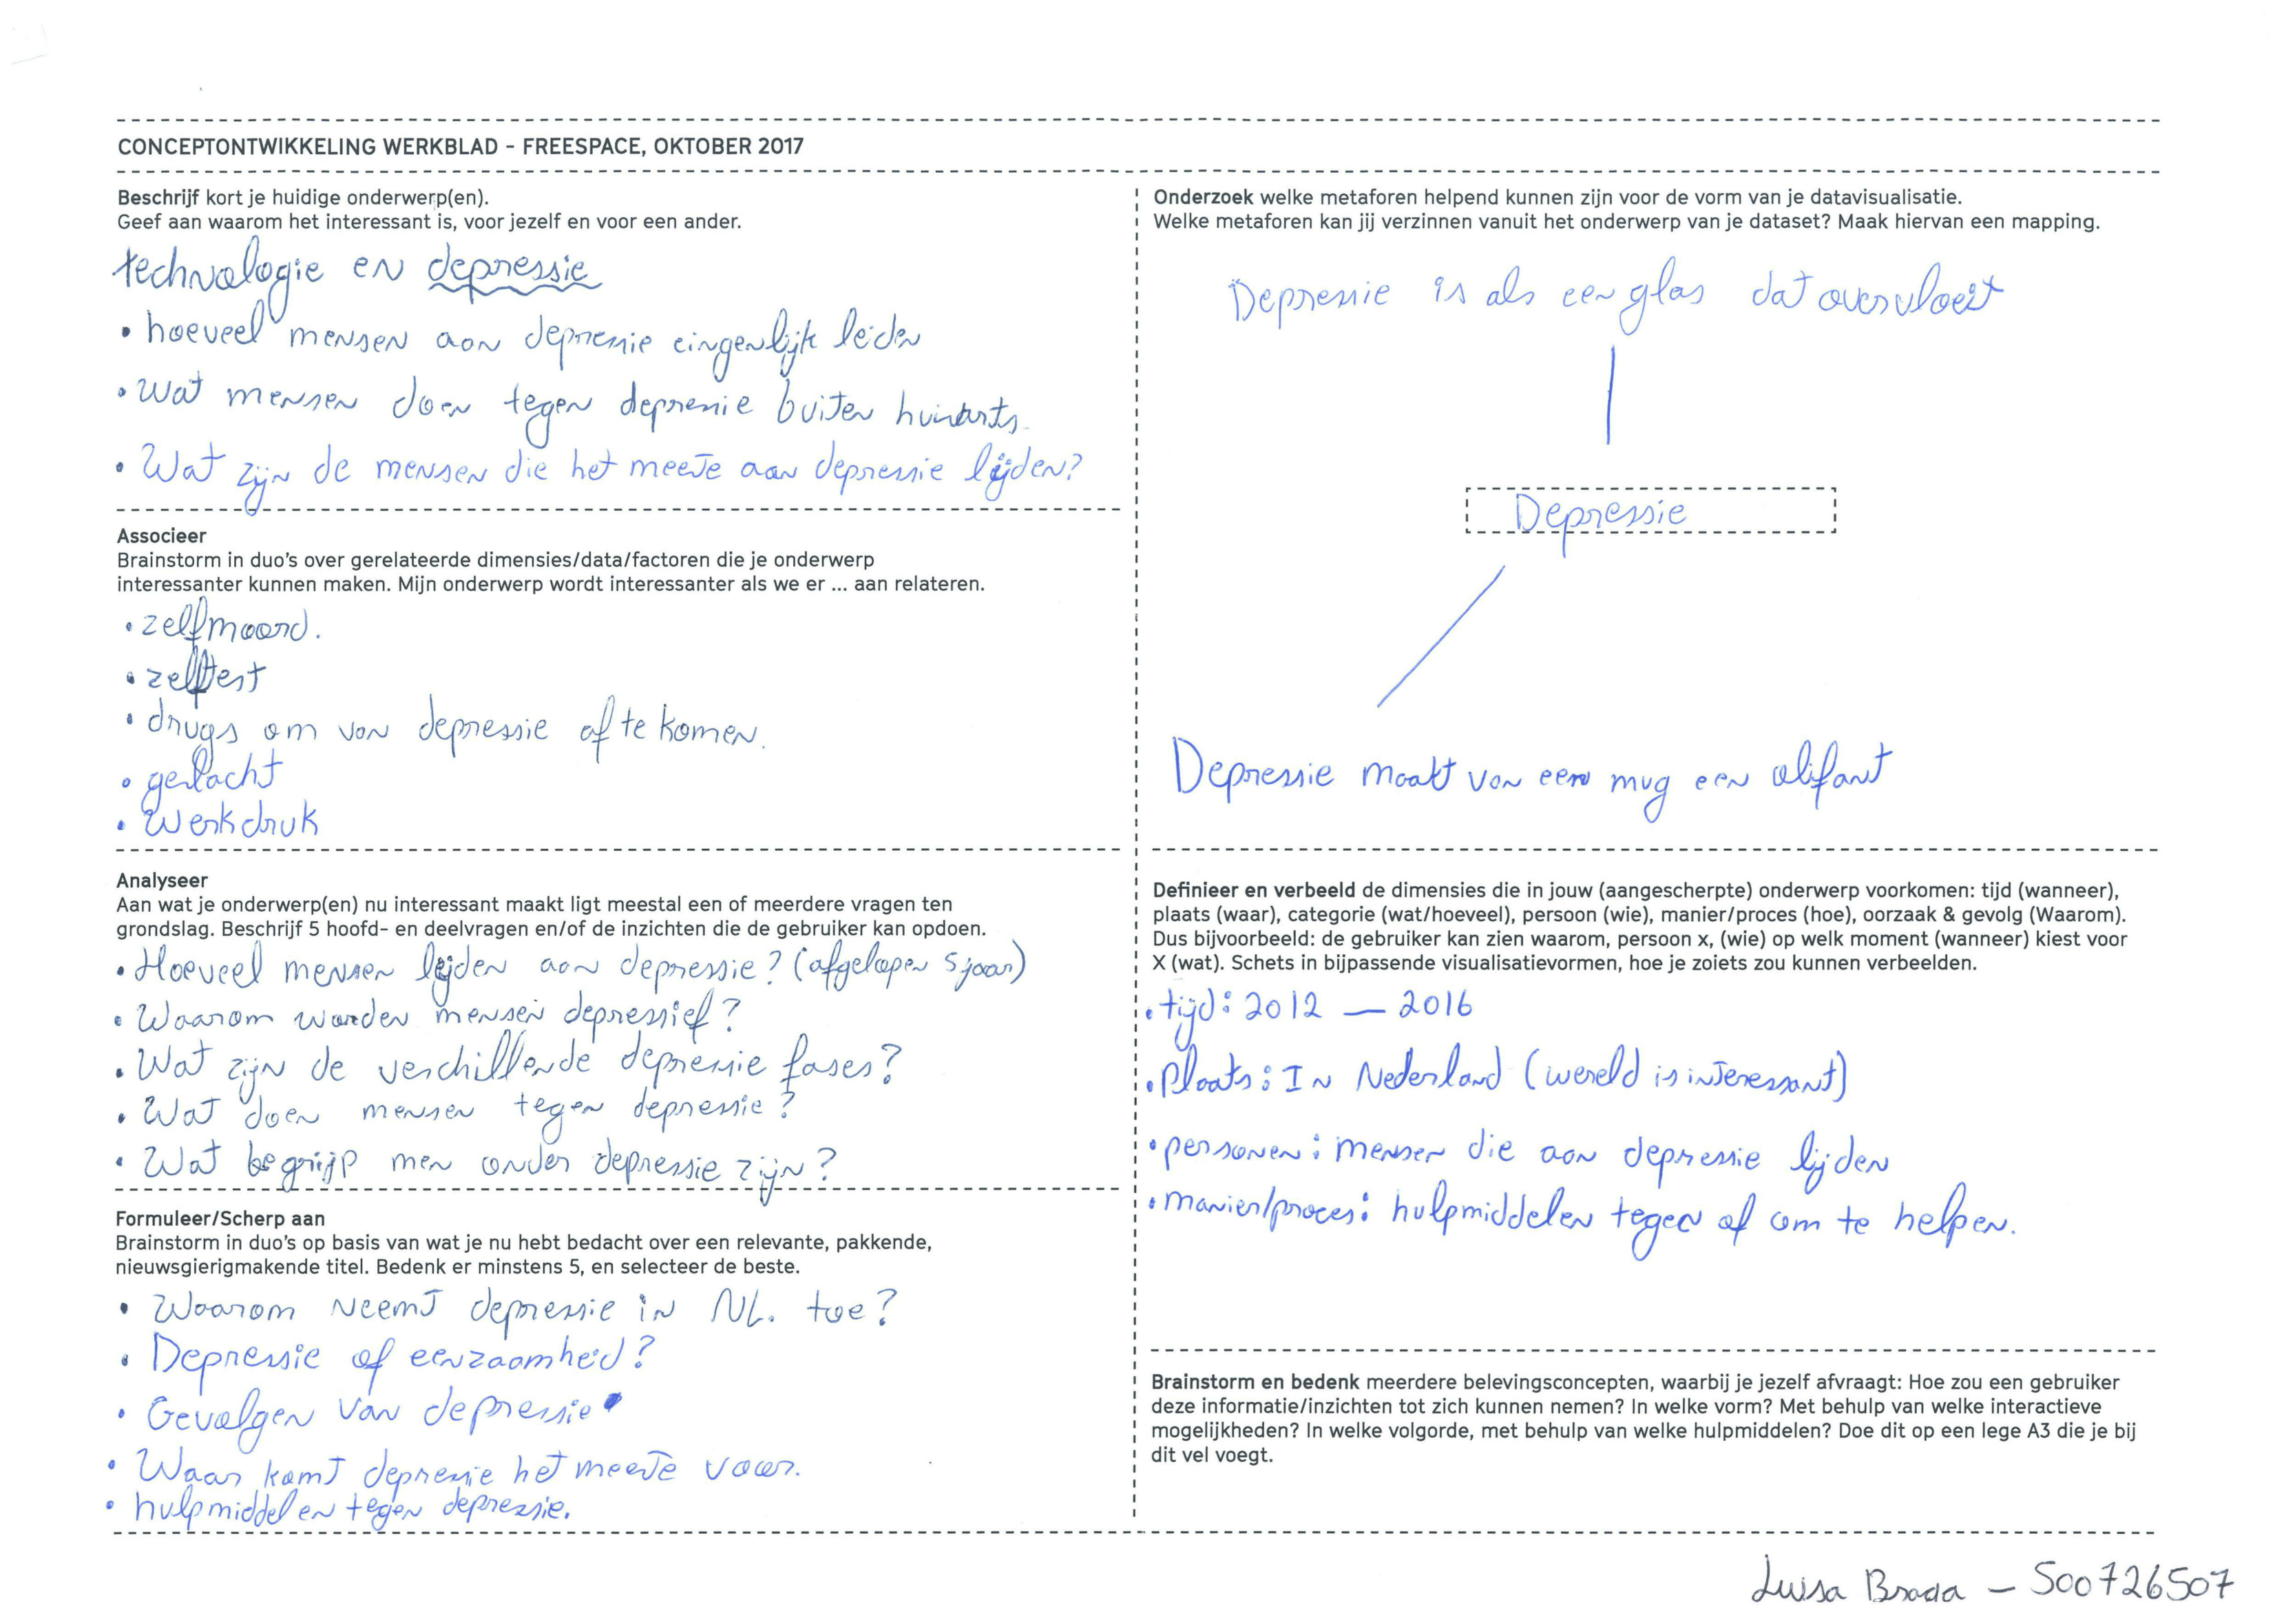 CONCEPTONTWIKKELING WERKBLAD - FREESPACE, OKTOBER 2017
Beschrijf kort je huidige onderwerp(en).
Geef aan waarom het interessant is, voor jezelf en voor een ander.
technologie en depressie
• hoeveel mensen aan depressie eingenlijk leiden
• Wat mensen doen tegen depressie buiten huisarts.
• Wat zijn de mensen die het meeste aan depressie lijden?
Associeer
Brainstorm in duo's over gerelateerde dimensies/data/factoren die je onderwerp
interessanter kunnen maken. Mijn onderwerp wordt interessanter als we er ... aan relateren.
• zelfmoord.
• zelftest
• drugs om van depressie af te komen.
• geslacht
• Werkdruk
Analyseer
Aan wat je onderwerp(en) nu interessant maakt ligt meestal een of meerdere vragen ten
grondslag. Beschrijf 5 hoofd- en deelvragen en/of de inzichten die de gebruiker kan opdoen.
• Hoeveel mensen lijden aan depressie? (afgelopen 5 jaar)
• Waarom worden mensen depressief?
• Wat zijn de verschillende depressie fases?
• Wat doen mensen tegen depressie?
• Wat begrijp men onder depressie zijn?
Formuleer/Scherp aan
Brainstorm in duo's op basis van wat je nu hebt bedacht over een relevante, pakkende,
nieuwsgierigmakende titel. Bedenk er minstens 5, en selecteer de beste.
• Waarom neemt depressie in NL. toe?
• Depressie of eenzaamheid?
• Gevolgen van depressie
• Waar komt depressie het meeste voor.
• hulpmiddelen tegen depressie.
Onderzoek welke metaforen helpend kunnen zijn voor de vorm van je datavisualisatie.
Welke metaforen kan jij verzinnen vanuit het onderwerp van je dataset? Maak hiervan een mapping.
Depressie is als een glas dat overvloeit
Depressie
Depressie maakt van een mug een olifant
Definieer en verbeeld de dimensies die in jouw (aangescherpte) onderwerp voorkomen: tijd (wanneer),
plaats (waar), categorie (wat/hoeveel), persoon (wie), manier/proces (hoe), oorzaak & gevolg (Waarom).
Dus bijvoorbeeld: de gebruiker kan zien waarom, persoon x, (wie) op welk moment (wanneer) kiest voor
X (wat). Schets in bijpassende visualisatievormen, hoe je zoiets zou kunnen verbeelden.
• tijd: 2012 — 2016
• Plaats: In Nederland (wereld is interessant)
• personen: mensen die aan depressie lijden
• manier/proces: hulpmiddelen tegen of om te helpen.
Brainstorm en bedenk meerdere belevingsconcepten, waarbij je jezelf afvraagt: Hoe zou een gebruiker
deze informatie/inzichten tot zich kunnen nemen? In welke vorm? Met behulp van welke interactieve
mogelijkheden? In welke volgorde, met behulp van welke hulpmiddelen? Doe dit op een lege A3 die je bij
dit vel voegt.
Luisa Brada — 500726507